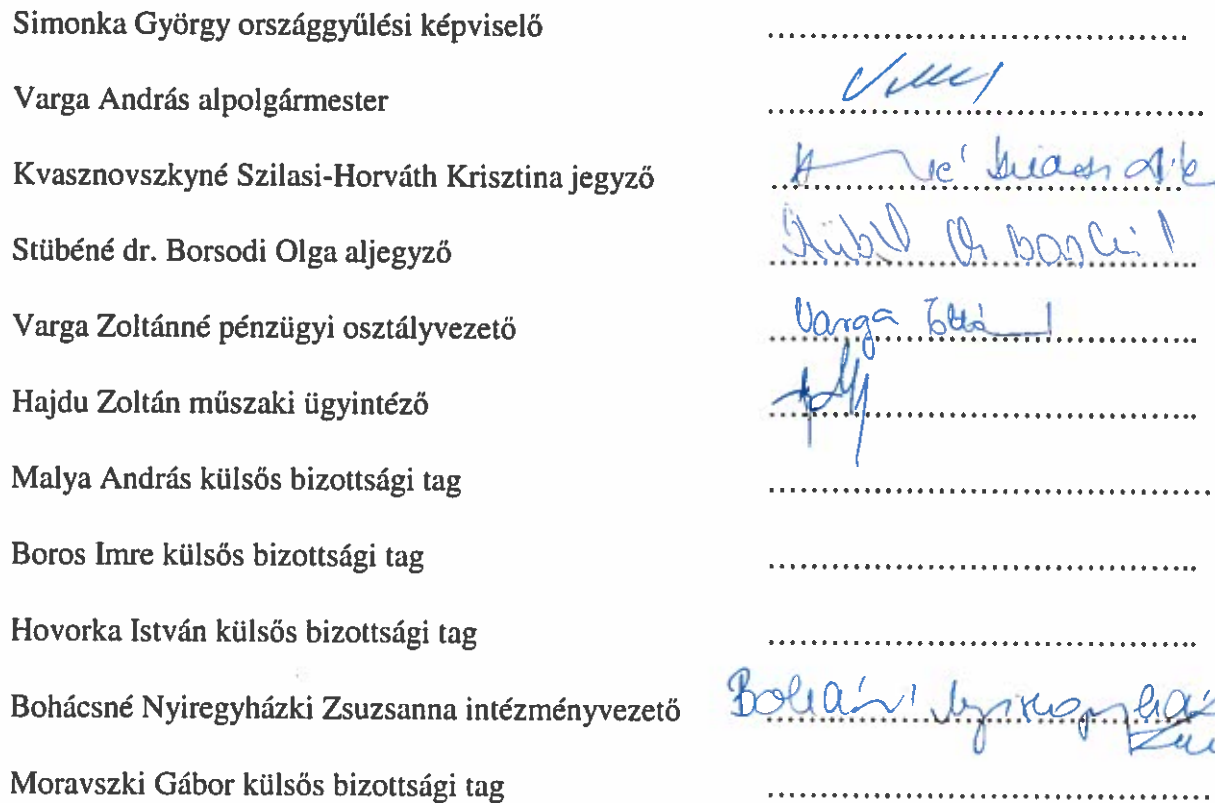 Simonka György országgyűlési képviselő
Varga András alpolgármester
Kvasznovszkyné Szilasi-Horváth Krisztina jegyző
Stübéné dr. Borsodi Olga aljegyző
Varga Zoltánné pénzügyi osztályvezető Varga
Hajdu Zoltán műszaki ügyintéző
Malya András külsős bizottsági tag
Boros Imre külsős bizottsági tag
Hovorka István külsős bizottsági tag
Bohácsné Nyiregyházki Zsuzsanna intézményvezető
Moravszki Gábor külsős bizottsági tag